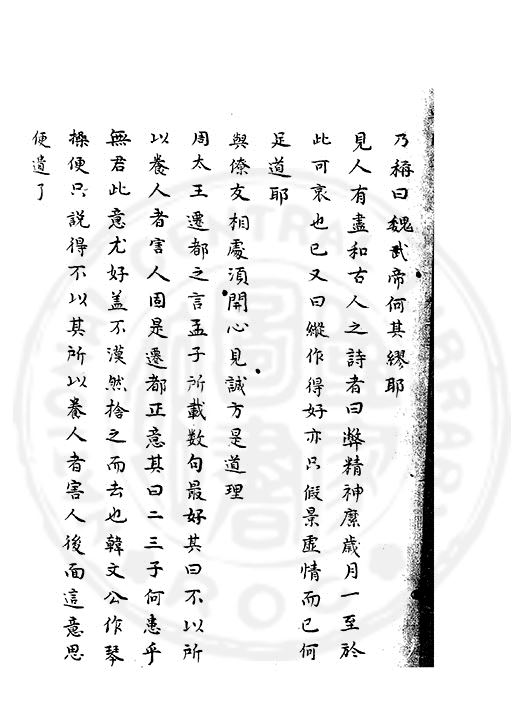 乃稱曰魏武帝何其繆耶
見人有盡和古人之詩者曰弊精神縻歲月一至於
此可哀也已又曰縱作得好亦只假景虛情而已何
足道耶
與僚友相處湏開心見誠方是道理
周太王遷都之言孟子所載数句最好其曰不以所
以養人者害人固是遷都正意其曰二三子何患乎
無君此意尤好盖不漠然捨之而去也韓文公作琴
操便只說得不以其所以養人者害人後面這意思
便遺了